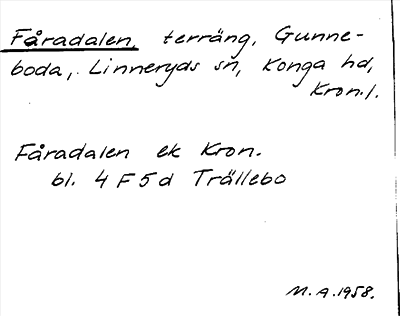 Fåradalen, terräng, Gunne-
boda, Linneryds sn, Konga hd,
Kron.l.
Fåradalen ek Kron.
bl. 4 F 5 d Trällebo
M.A.1958.